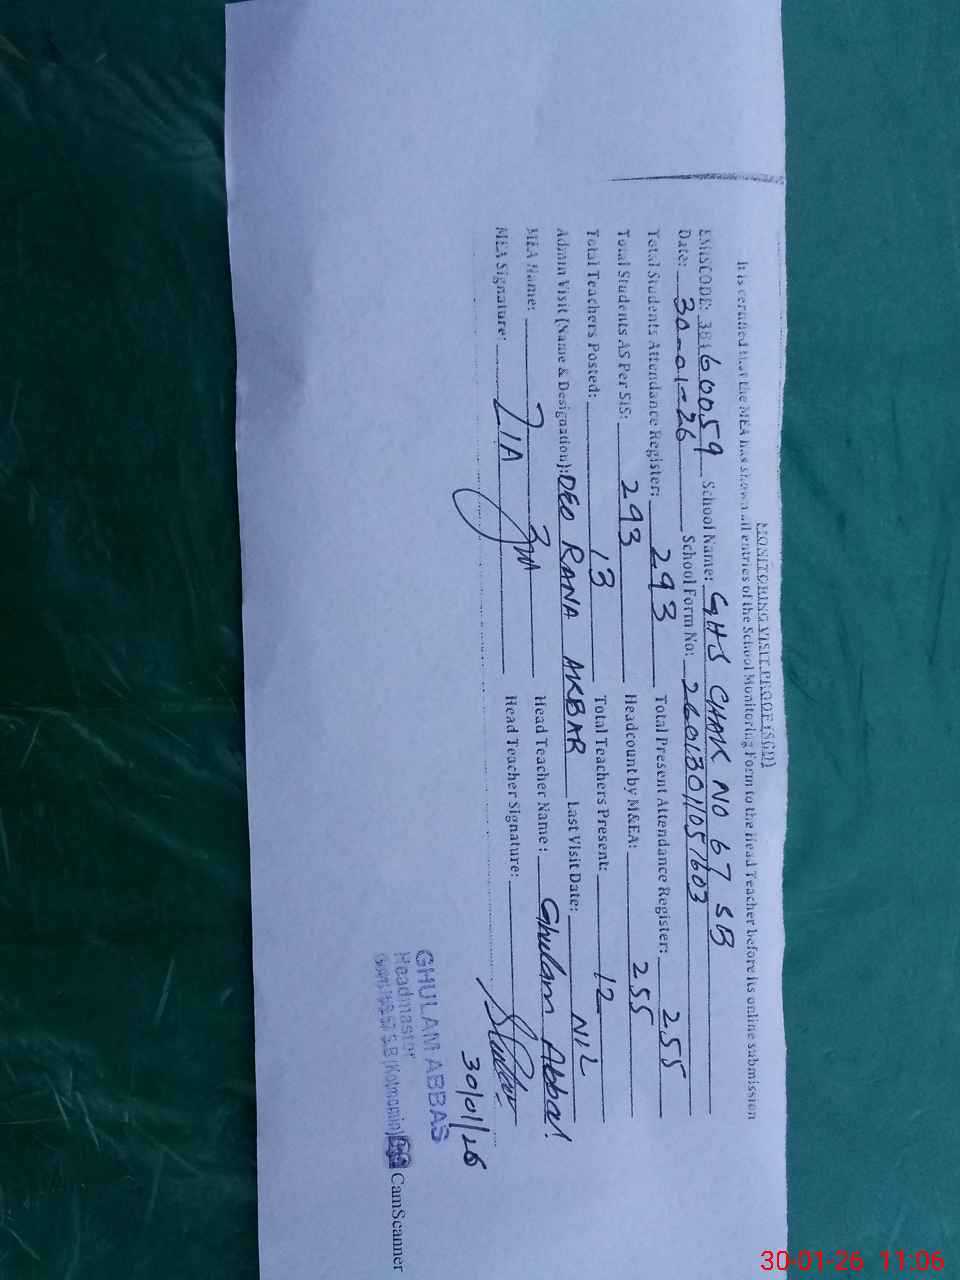 MONITORING VISIT PROOF (SGD)
It is certified that the MEA has shown all entries of the School Monitoring Form to the Head Teacher before its online submission
EMISCODE: 38460059 School Name: GHS CHAK NO 67 SB
Date: 30-01-26 School Form No: 26013011051603
Total Students Attendance Register: 293 Total Present Attendance Register: 255
Total Students AS Per SIS: 293 Headcount by M&EA: 255
Total Teachers Posted: 13 Total Teachers Present: 12
Admin Visit (Name & Designation): DEO RANA AKBAR Last Visit Date: NIL
MEA Name: Head Teacher Name: Ghulam Abbas
MEA Signature: ZIA Head Teacher Signature:
30/01/26
GHULAM ABBAS
Headmaster
S.B (Kotmomin)
CamScanner
30-01-26 11:06